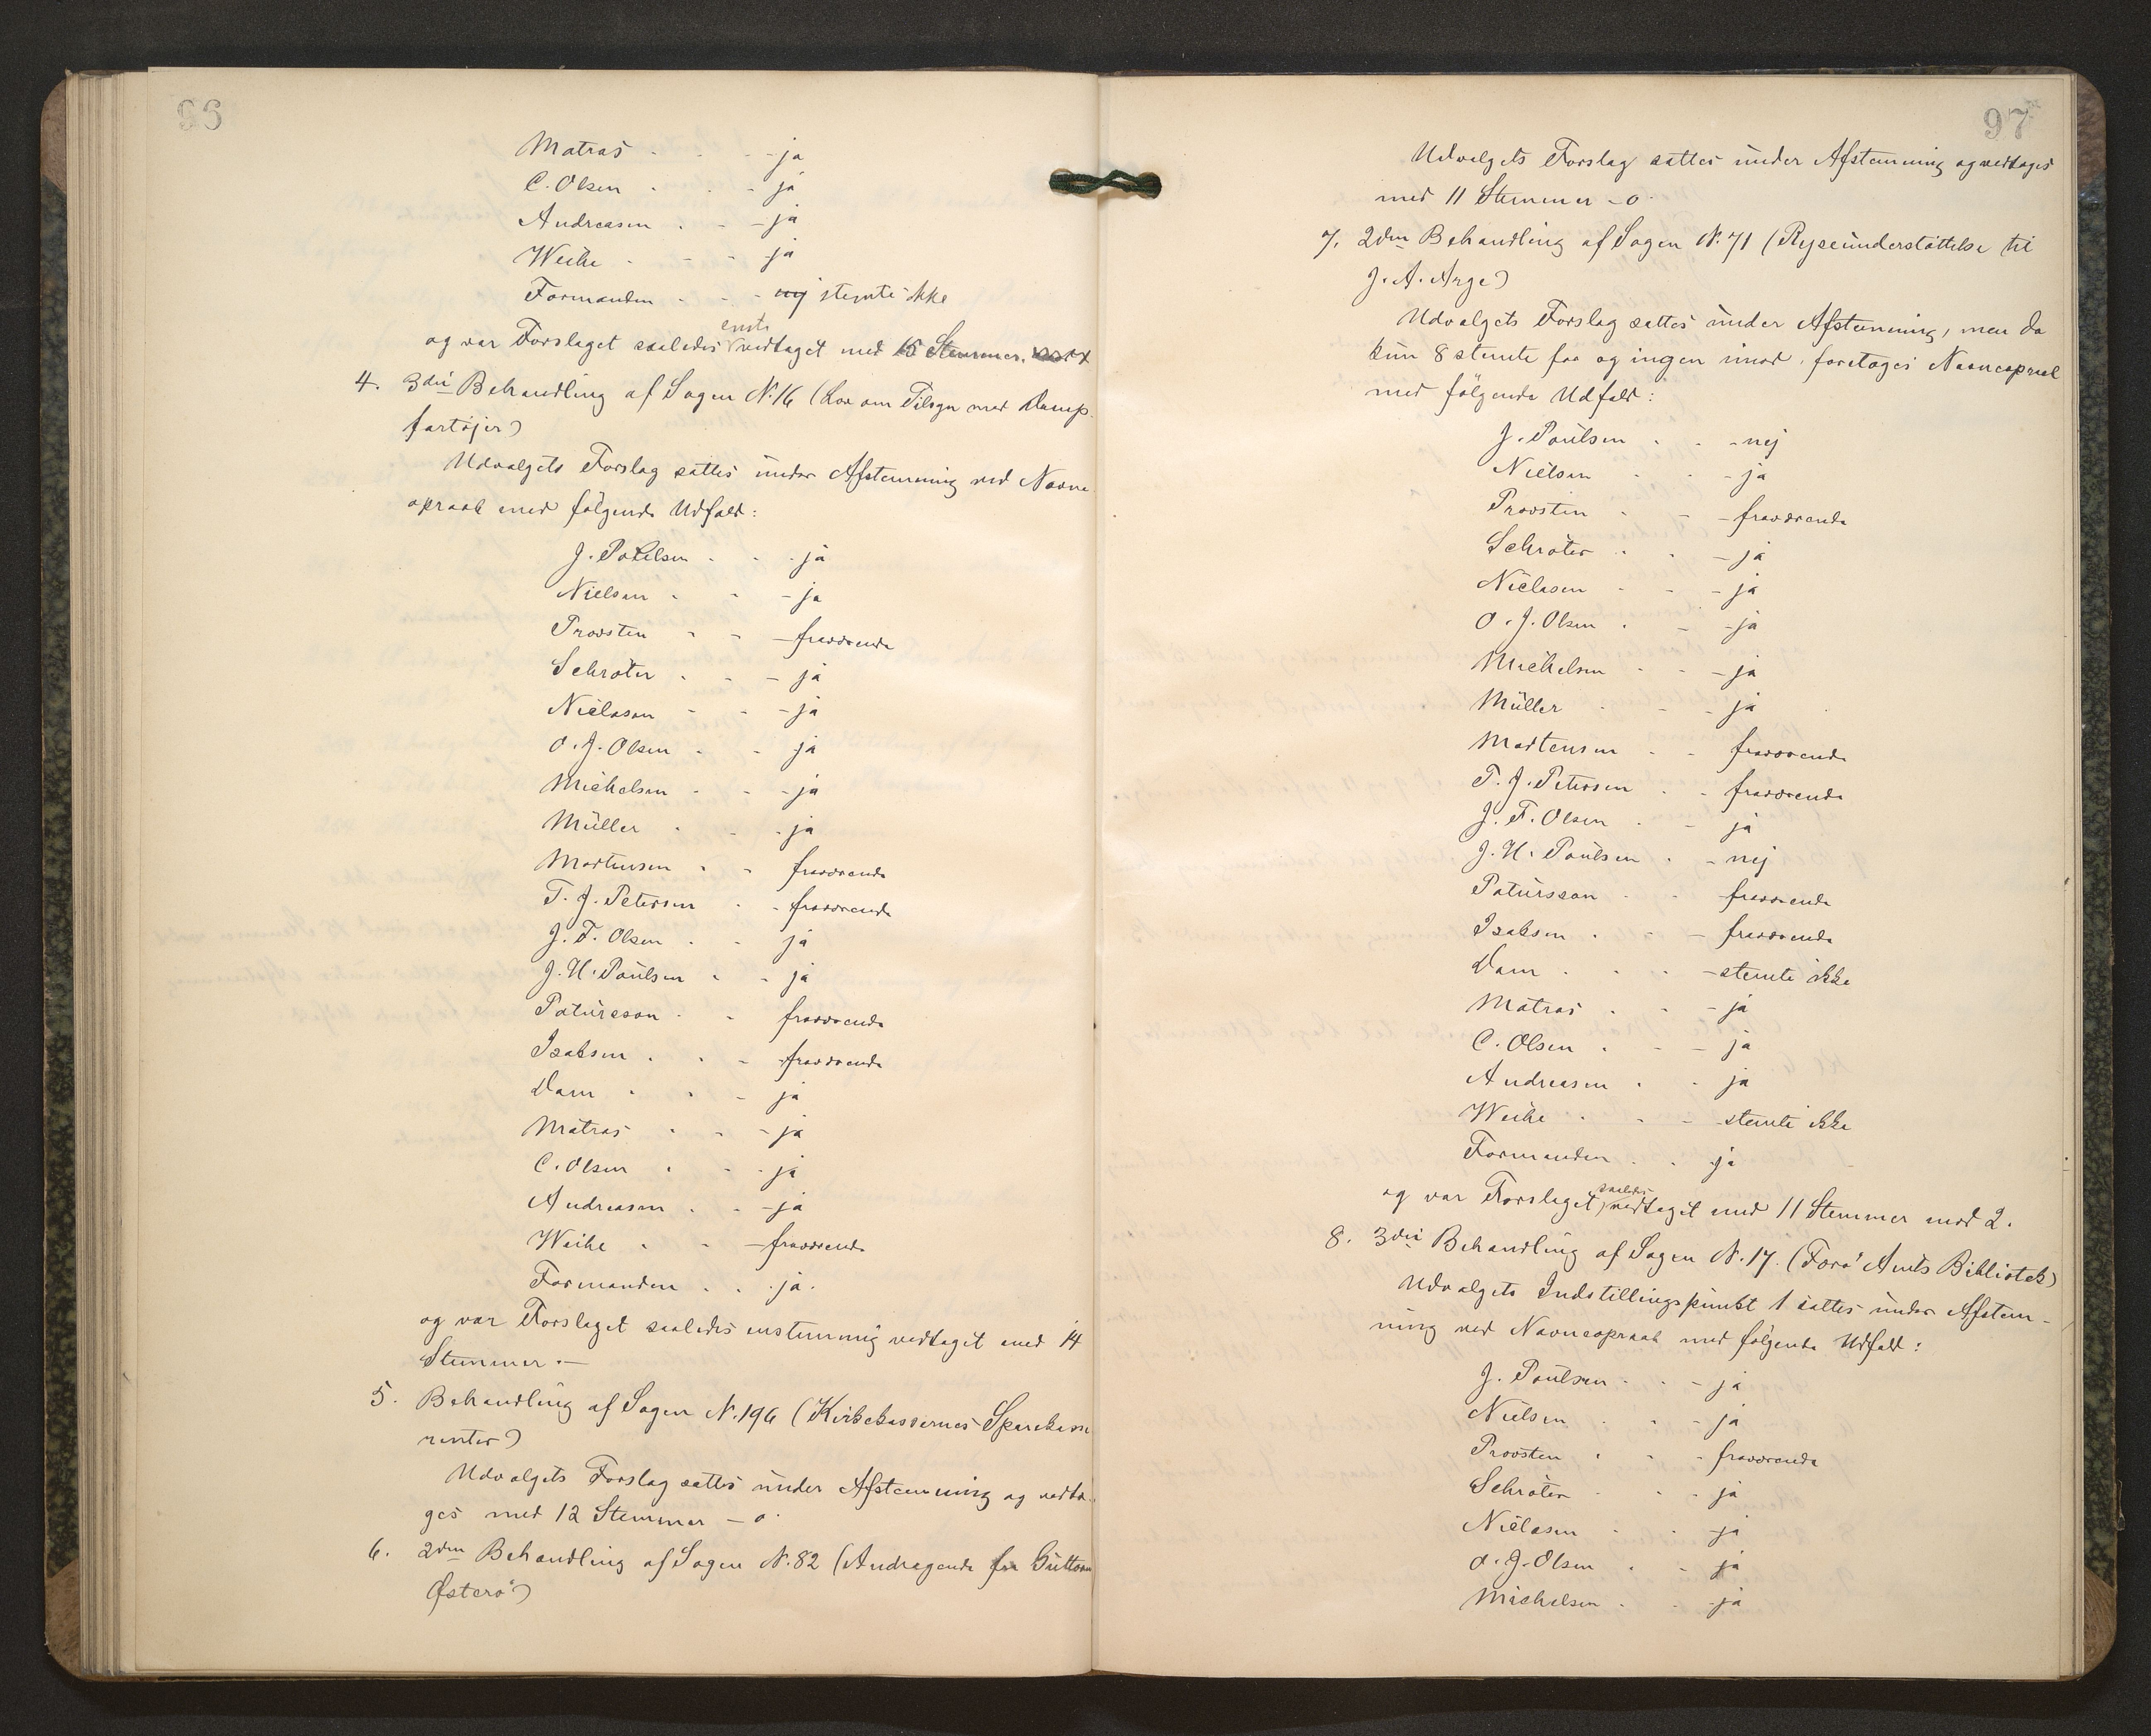 96
Matras - - - ja
C. Olsen - - - ja
Andreasen - - - ja
Weihe - - - ja
Formanden - - - nej stemte ikke
enst.
og var Forslaget saaledes vedtaget med 15 Stemmer.
4. 3die Behandling af Sagen N. 16 (Lov om Tilsyn med Damp-
fartøjer)
Udvalgets Forslag sattes under Afstemning ved Navne-
opraab med følgende Udfald:
J. Poulsen - - - ja
Nielsen - - - ja
Provsten - - - fraværende
Schrøter - - - ja
Niclasen - - - ja
O. J. Olsen - - ja
Michelsen - - - ja
Müller - - - ja
Mortensen - - fraværende
T. J. Petersen - - fraværende
J. F. Olsen - - ja
J. H. Poulsen - - ja
Patursson - - fraværende
Isaksen - - - fraværende
Dam - - - ja
Matras - - - ja
C. Olsen - - - ja
Andreasen - - - ja
Weihe - - - fraværende
Formanden - - ja.
og var Forslaget saaledes enstemmig vedtaget med 14
Stemmer. —
5. Behandling af Sagen N. 196 (Kirkekassernes Sparekasse-
renter)
Udvalgets Forslag sattes under Afstemning og vedto-
ges med 12 Stemmer - 0.
6. 2den Behandling af Sagen N. 82 (Andragende fra Guttorm
Østerø)
97
Udvalgets Forslag sattes under Afstemning og vedtoges
med 11 Stemmer - 0.
7. 2den Behandling af Sagen N. 71 (Rejseunderstøttelse til
J. A. Arge)
Udvalgets Forslag sattes under Afstemning, men da
kun 8 stemte for og ingen imod, foretoges Navneopraab
med følgende Udfald:
J. Poulsen - - - nej
Nielsen - - - ja
Provsten - - - fraværende
Schrøter - - - ja
Niclasen - - - ja
O. J. Olsen - - - ja
Michelsen - - - ja
Müller - - - ja
Mortensen - - fraværende
T. J. Petersen - - fraværende
J. F. Olsen - - ja
J. H. Poulsen - - nej
Patursson - - fraværende
Isaksen - - - fraværende
Dam - - - stemte ikke
Matras - - - ja
C. Olsen - - - ja
Andreasen - - ja
Weihe - - - stemte ikke
Formanden - - ja
saaledes
og var Forslaget vedtaget med 11 Stemmer mod 2.
8. 3die Behandling af Sagen N. 17. (Færø Amts Bibliotek)
Udvalgets Indstillingspunkt 1 sattes under Afstem-
ning ved Navneopraab med følgende Udfald:
J. Poulsen - - - ja
Nielsen - - - ja
Provsten - - - fraværende
Schrøter - - - ja
Niclasen - - - ja
O. J. Olsen - - ja
Michelsen - - - ja